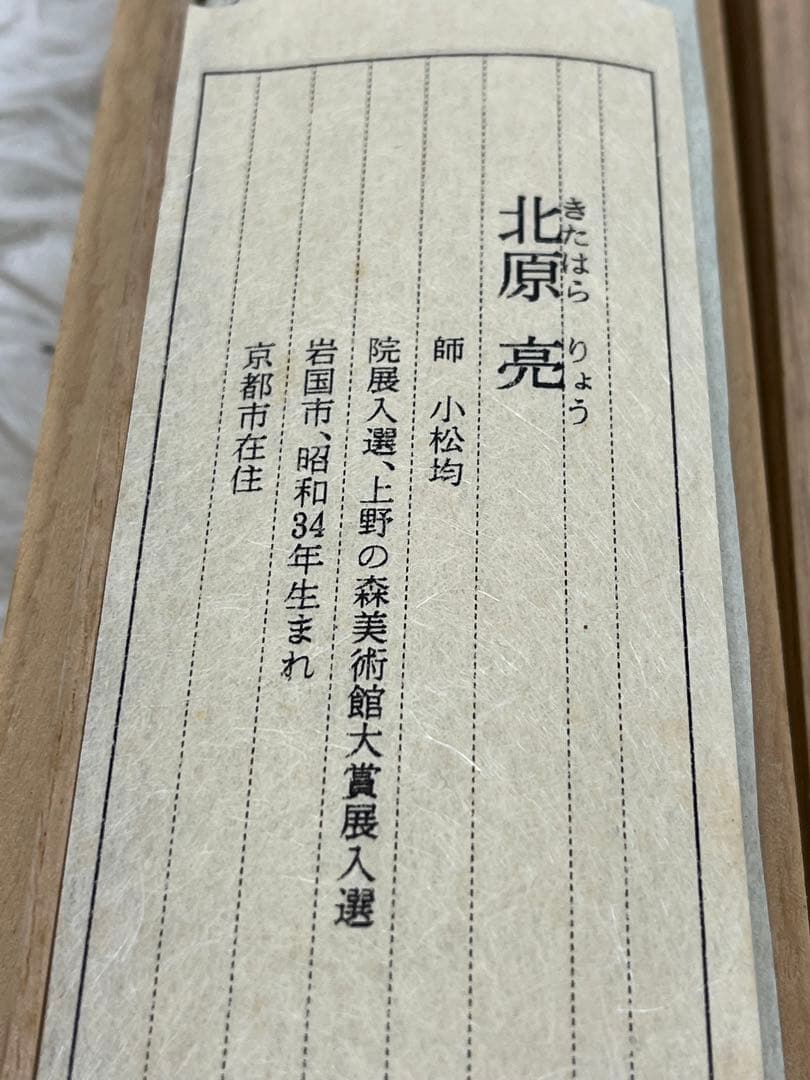 きたはら りょう
北原 亮
師 小松均
院展入選、上野の森美術館大賞展入選
岩国市、昭和34年生まれ
京都市在住